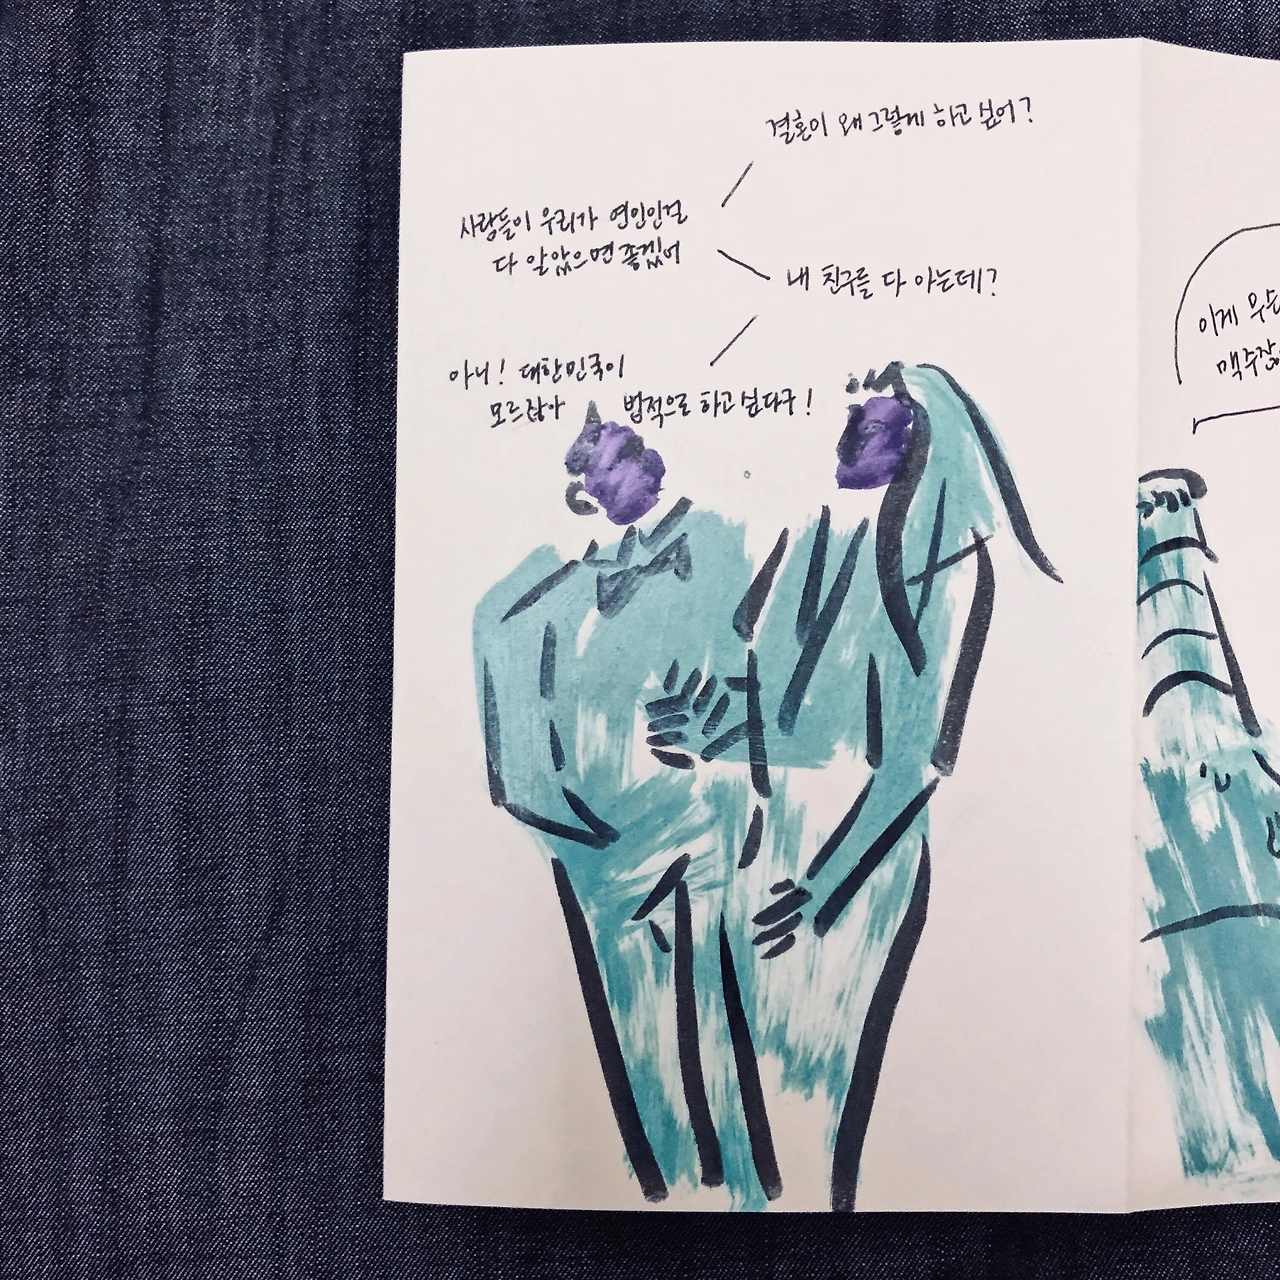 결혼이 왜 그렇게 하고 싶어?
사람들이 우리가 연인인걸
다 알았으면 좋겠어
내 친구들 다 아는데?
아니! 대한민국이
모르잖아 법적으로 하고 싶다구!
이게 무슨
맥주잖